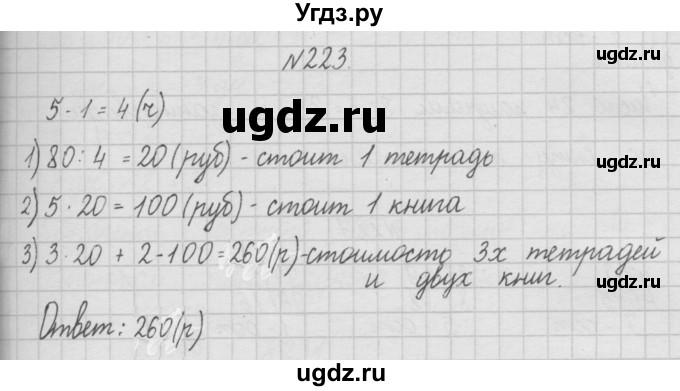 Угдз.ру
ugdz.ru
ugdz.ru
№223.
5-1=4(ч)
ugdz.ru
1) 80:4=20(руб)-стоит 1 тетрадь
2) 5·20=100(руб)-стоит 1 книга
3) 3·20+2-100=260(р)-стоимость 3х тетрадей
и двух книг.
Ответ: 260(р)
ugdz.ru
ugdz.ru